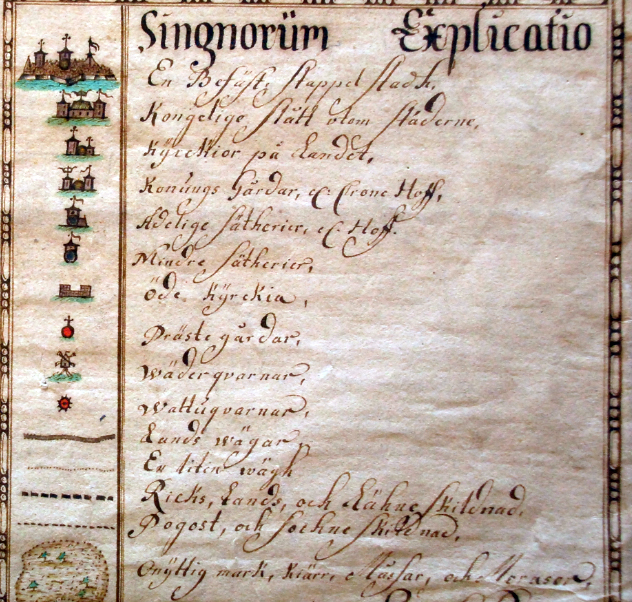 Singnorüm Explicatio
En Befäst, Stappel stadt,
Kongelige slått utom städerne,
Kÿrckior på Landet,
Konungs Gårdar, et Crono Hoff,
Adelige Sätherier, et Hoff.
Mindre Sätherier,
öde Kÿrckia,
Präste gårdar,
Wäderqvarnar,
Wattuqvarnar,
Lands wägar,
En liten wägh
Ricks, Lands, och Lähne skildnad,
Pogost, och Sochne skildnad,
Onÿttig mark, Kiärr, Måssar, och Moraser,